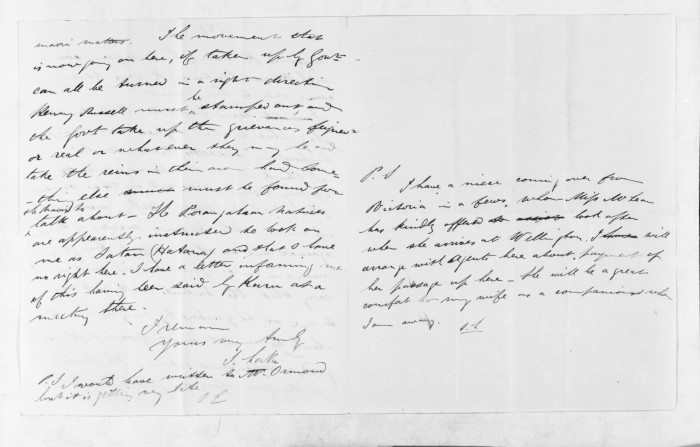 maori matters. The movement that
is now going on here, if taken up by Govt.
can all be turned in a right direction
Henry Russell must be stamped out and
the Govt take up the grievances feigned
or real or whatever they may be, and
take the reins in their own hand. Some
-thing else must be found for
the Maoris to
talk about - The Porangahau natives
are apparently instructed to look on
me as Satan (Hatana) and that I have
no right here. I have a letter informing me
of this having been said by Karu at a
meeting there.
I remain
Yours very truly
S. Locke
P.S I would have written to Mr. Ormond
but it is getting very late
SL
P.S
I have a niece coming over from
Victoria in a few, whom Miss McLean
has kindly offered to look after
when she arrives at Wellington. I will
arrange with Agents here about payment of
her passage up here - She will be a great
comfort to my wife as a companion when
I am away.
S.L